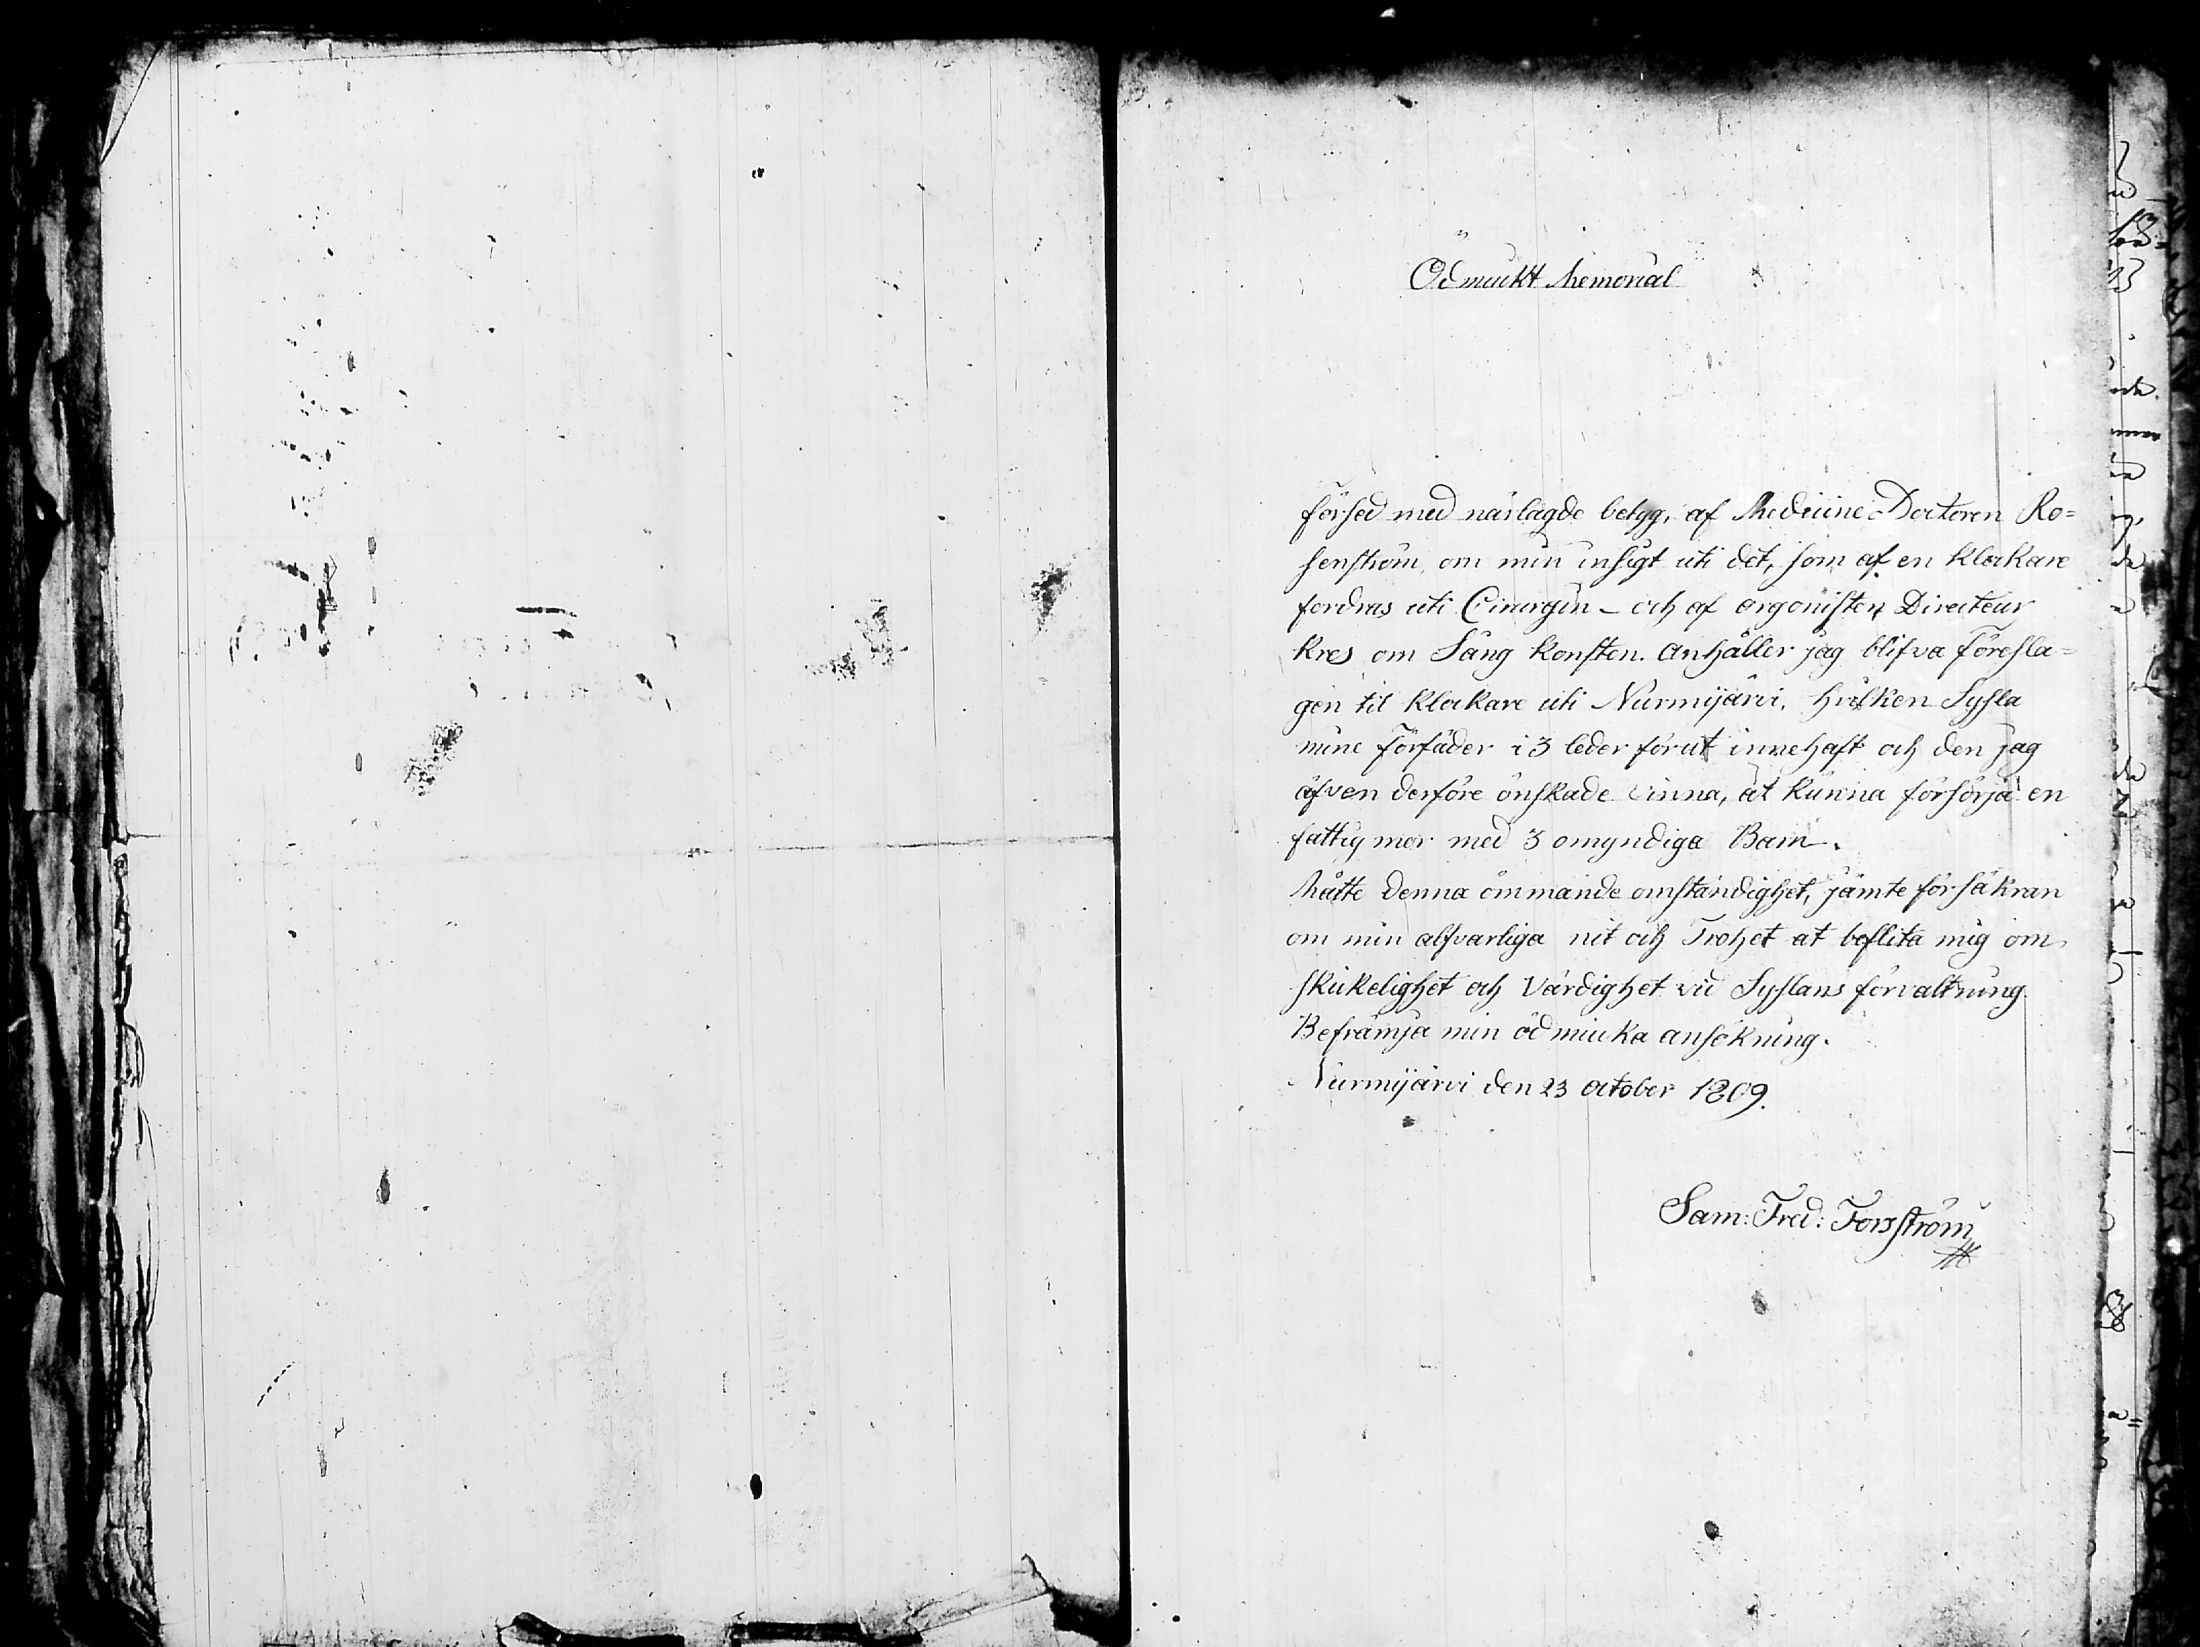 Ödmiukt Memorial
försed med närlagde betyg, af Medicine Doctoren Ro=
senström, om min insigt uti det, som af en klockare
fordras uti Cirurgin – och af organisten Directeur
Kres om Sång konsten. anhåller jag blifva föresla=
gen til klockare uti Nurmijärvi, hvilken Sysla
mine förfäder i 3 leder förut innehaft och den jag
äfven derföre önskade vinna, at kunna försörja en
fattig mor med 3 omyndiga Barn.
Måtte denna ömmande omständighet, jämte försäkran
om min alfvarliga nit och Trohet at beflita mig om
skickelighet och Värdighet vid Syslans förvaltning
Befrämja min ödmiuka ansökning.
Nurmijärvi den 23 october 1809.
Sam: Fred: Forsström